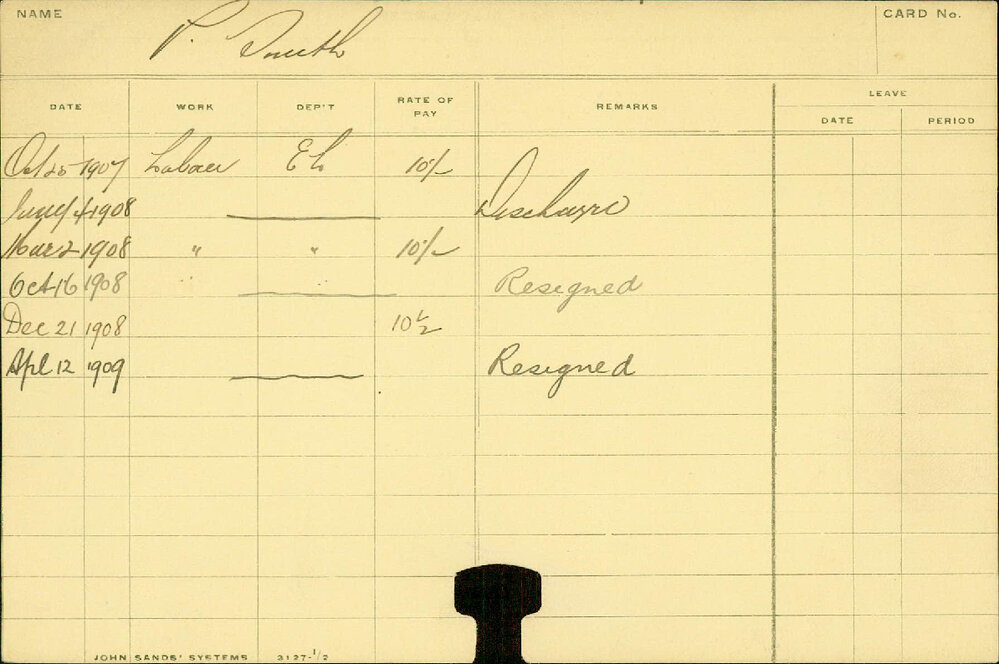 NAME P. Smith CARD No.
DATE WORK DEP'T RATE OF PAY REMARKS LEAVE
DATE PERIOD
Oct 1907 Labour EL 10/-
4 1908 Discharged
Mar 2 1908 " " 10/-
Oct 16 1908 Resigned
Dec 21 1908 10
Apl 12 1909 Resigned
JOHN SANDS' SYSTEMS 3127-1/2